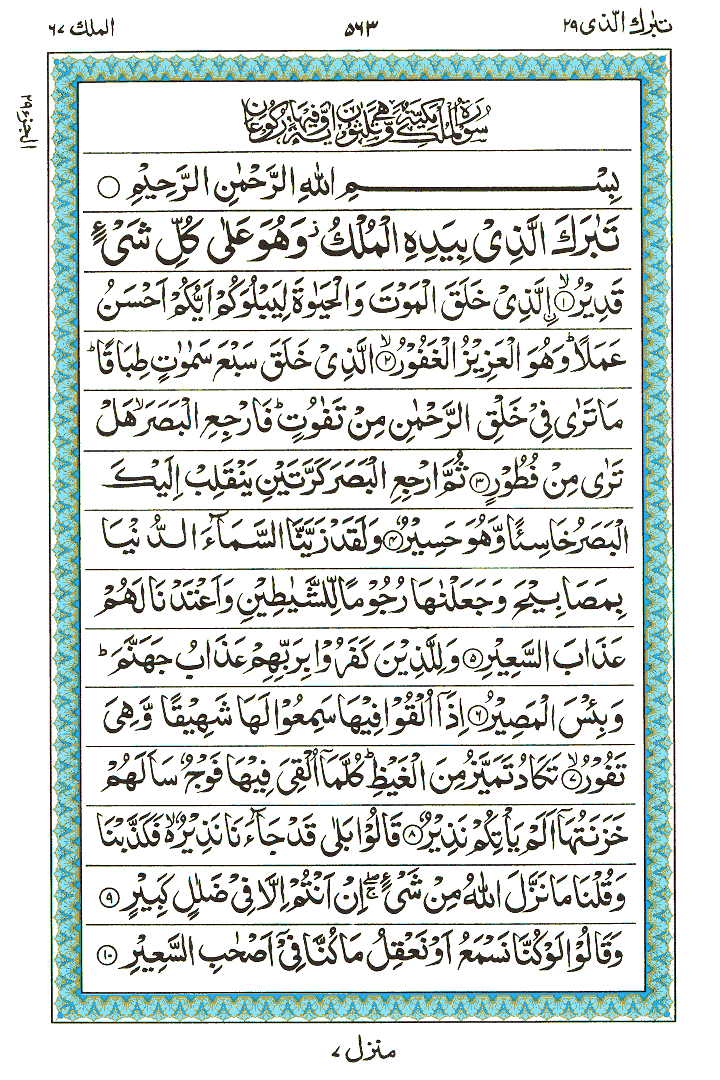 تبٰرك الّذی ٢٩
٥٦٣
الملك ٦٧
الجزء ٢٩
سُوْرَةُ الْمُلْكِ مَكِّيَّةٌ وَّهِيَ ثَلٰثُوْنَ اٰيَةً وَّفِيْهَا رُكُوْعَانِ
بِسْــــــمِ اللّٰهِ الرَّحْمٰنِ الرَّحِيْمِ ۝
تَبٰرَكَ الَّذِیْ بِيَدِهِ الْمُلْكُ ز وَهُوَ عَلٰی كُلِّ شَیْءٍ
قَدِيْرُ ۙ﴿١﴾ اِ۟لَّذِیْ خَلَقَ الْمَوْتَ وَالْحَيٰوةَ لِيَبْلُوَكُمْ اَيُّكُمْ اَحْسَنُ
عَمَلًا ؕ وَهُوَ الْعَزِيْزُ الْغَفُوْرُ ۙ﴿٢﴾ الَّذِیْ خَلَقَ سَبْعَ سَمٰوٰتٍ طِبَاقًا ؕ
مَا تَرٰی فِیْ خَلْقِ الرَّحْمٰنِ مِنْ تَفٰوُتٍ ؕ فَارْجِعِ الْبَصَرَ ۙ هَلْ
تَرٰی مِنْ فُطُوْرٍ ﴿٣﴾ ثُمَّ ارْجِعِ الْبَصَرَ كَرَّتَيْنِ يَنْقَلِبْ اِلَيْكَ
الْبَصَرُ خَاسِئًا وَّهُوَ حَسِيْرٌ ﴿٤﴾ وَلَقَدْ زَيَّنَّا السَّمَآءَ الدُّنْيَا
بِمَصَابِيْحَ وَجَعَلْنٰهَا رُجُوْمًا لِّلشَّيٰطِيْنِ وَاَعْتَدْنَا لَهُمْ
عَذَابَ السَّعِيْرِ ﴿٥﴾ وَلِلَّذِيْنَ كَفَرُوْا بِرَبِّهِمْ عَذَابُ جَهَنَّمَ ؕ
وَبِئْسَ الْمَصِيْرُ ﴿٦﴾ اِذَاۤ اُلْقُوْا فِيْهَا سَمِعُوْا لَهَا شَهِيْقًا وَّهِیَ
تَفُوْرُ ۙ﴿٧﴾ تَكَادُ تَمَيَّزُ مِنَ الْغَيْظِ ؕ كُلَّمَاۤ اُلْقِیَ فِيْهَا فَوْجٌ سَاَلَهُمْ
خَزَنَتُهَاۤ اَلَمْ يَاْتِكُمْ نَذِيْرٌ ﴿٨﴾ قَالُوْا بَلٰی قَدْ جَآءَنَا نَذِيْرٌ ۙ۬ فَكَذَّبْنَا
وَقُلْنَا مَا نَزَّلَ اللّٰهُ مِنْ شَیْءٍ ۖۚ اِنْ اَنْتُمْ اِلَّا فِیْ ضَلٰلٍ كَبِيْرٍ ﴿٩﴾
وَقَالُوْا لَوْ كُنَّا نَسْمَعُ اَوْ نَعْقِلُ مَا كُنَّا فِیْۤ اَصْحٰبِ السَّعِيْرِ ﴿١٠﴾
منزل ٧